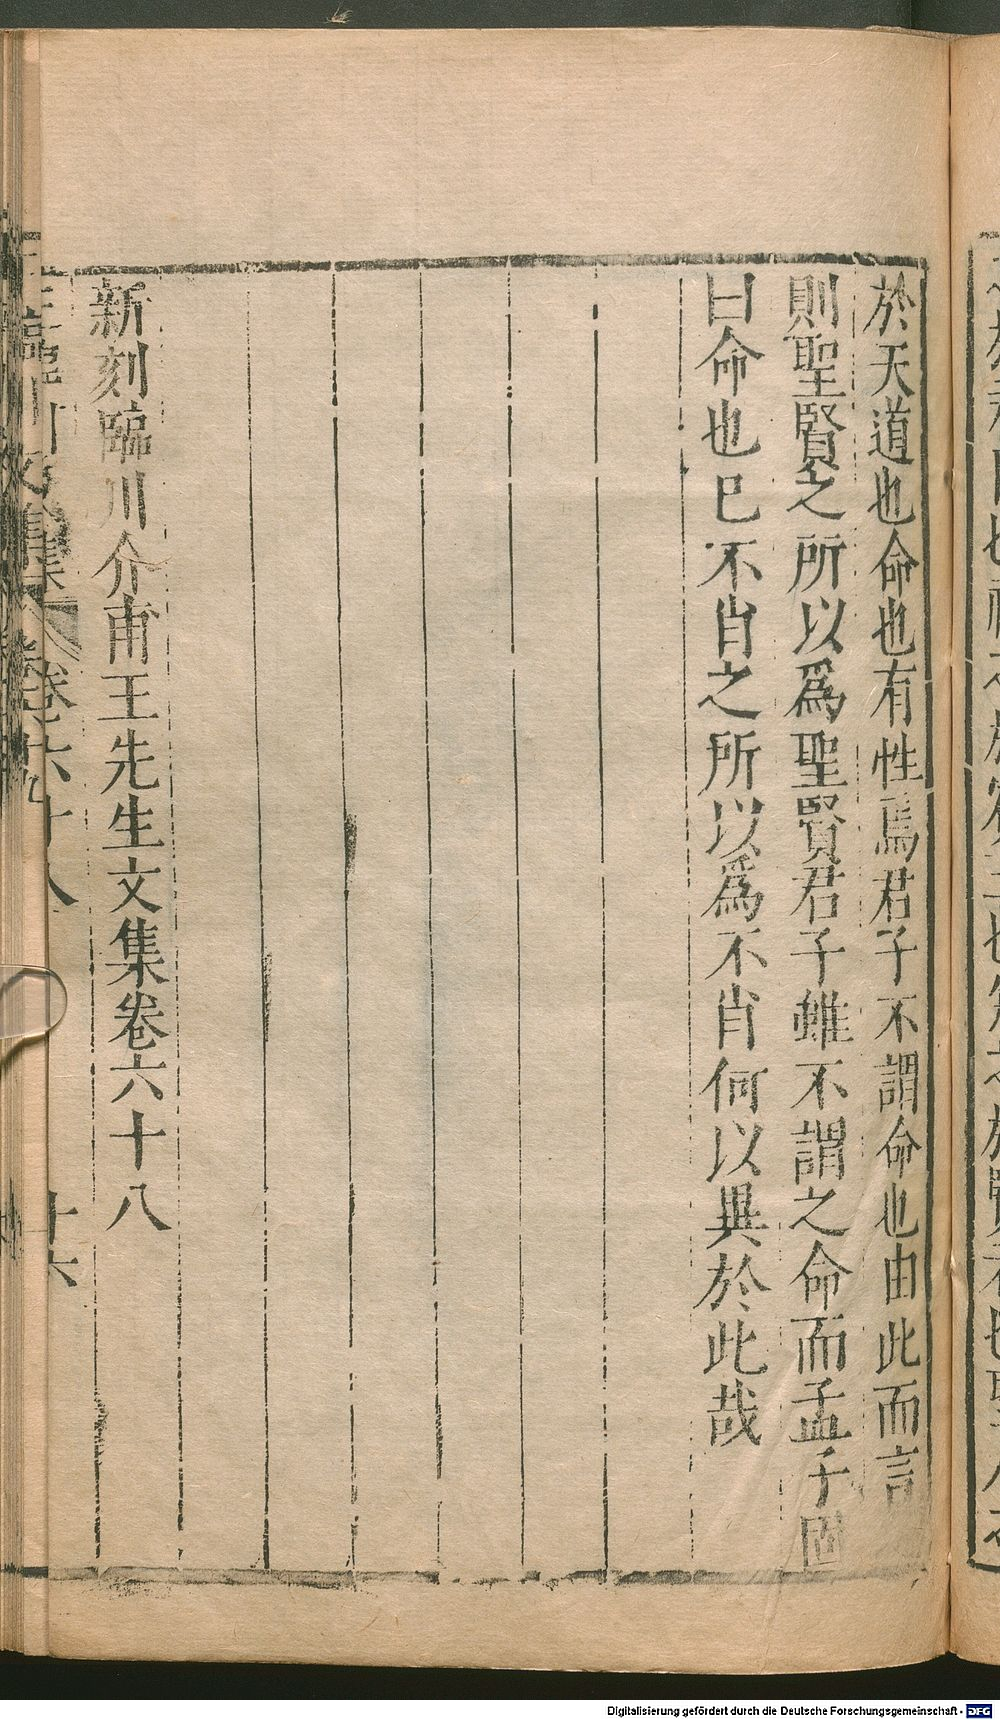 於天道也命也有性焉君子不謂命也由此而言
則聖賢之所以爲聖賢君子雖不謂之命而孟子固
曰命也已不肖之所以爲不肖何以異於此哉
新刻臨川介甫王先生文集卷六十八
王臨川文集
卷六十八
十六
Digitalisierung gefördert durch die Deutsche Forschungsgemeinschaft - DFG